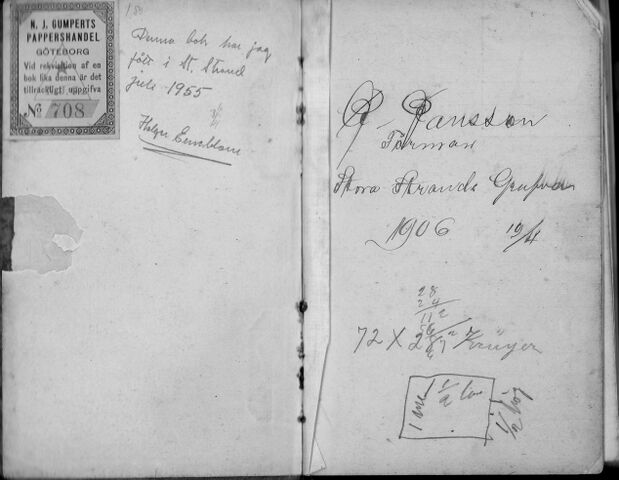 N. J. GUMPERTS
PAPPERSHANDEL
GÖTEBORG
Vid rekvisition af en
bok lika denna är det
tillräckligt uppgifva
№ 708
Denna bok har jag
fått i St. Strand
jul 1955
Helge
Jansson
Förman
Stora Strands Grufva
1906 19/4
28
24
112
56
72 X
1/2
1 1/2